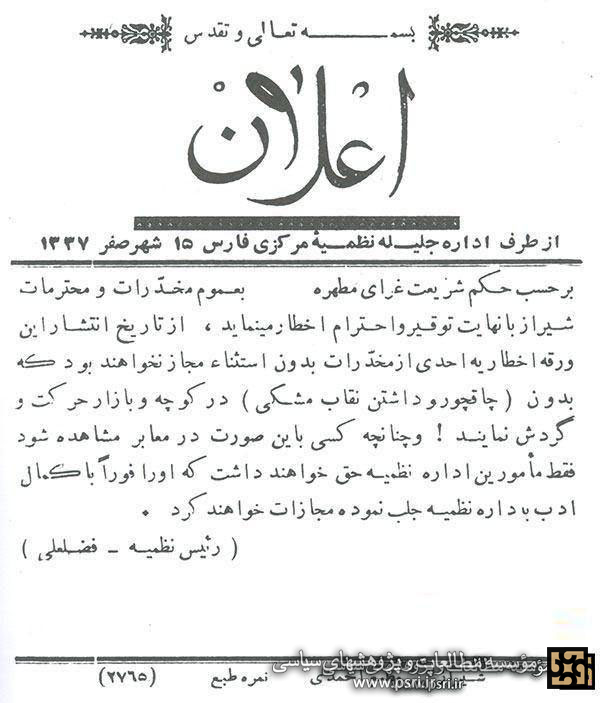 بسمه تعالی و تقدس
اعلان
از طرف اداره جلیله نظمیهٔ مرکزی فارس ۱۵ شهر صفر ۱۳۳۷
برحسب حکم شریعت غرای مطهره بعموم مخدّرات و محترمات
شیراز با نهایت توقیر و احترام اخطار مینماید ، از تاریخ انتشار این
ورقه اخطاریه احدی از مخدّرات بدون استثناء مجاز نخواهند بود که
بدون ( چاقچور و داشتن نقاب مشکی ) در کوچه و بازار حرکت و
گردش نمایند ! وچنانچه کسی باین صورت در معابر مشاهده شود
فقط مأمورین اداره نظمیه حق خواهند داشت که اورا فوراً با کمال
ادب باداره نظمیه جلب نموده مجازات خواهند کرد .
( رئیس نظمیه - فضلعلی )
مؤسسه مطالعات و پژوهشهای سیاسی
نمره طبع (۲۷۶۵)
www.psri.ir